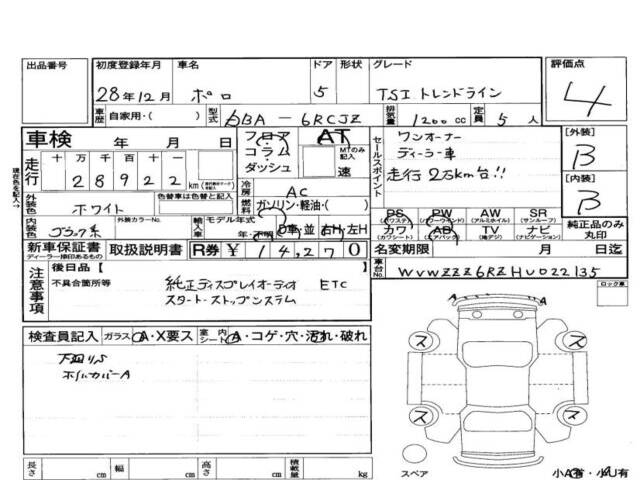 出品番号 初度登録年月 車名 ドア 形状 グレード 評価点
28年12月 ポロ 5 TSI トレンドライン 4
車歴 自家用・( ) 型式 DBA-6RCJZ 排気量 1200cc 定員 5人
車検 年 月 日 フロア・コラム・ダッシュ AT MTのみ記入 速
現在色を記入→
走行 十 万 千 百 十 一
2 8 9 2 2 km
セールスポイント ワンオーナー
ディーラー車
走行 2万km台!!
[外装] B
[内装] B
外装色 ホワイト 色替車は色替と記入
冷房 AC
燃料 ガソリン・軽油・( )
内装色 ブラック系 外装カラーNo. 輸入車 モデル年式 年・不明 D車・並 右H・左H
PS (パワステ) PW (パワーウインド) AW (アルミホイル) SR (サンルーフ)
カワ (カワシート) AB (エアバック) TV (地デジ) ナビ (ナビゲーション)
純正品のみ丸印
新車保証書 ディーラー捺印あるもの 取扱説明書 R券 ¥ 14,270 名変期限 月 日迄
注意事項 後日品 [ ]
不具合箇所等 純正ディスプレイオーディオ ETC
スタート・ストップシステム
車台No. WVWZZZ6RZHU022135
ロック車
検査員記入 ガラス A・X要ス 室内シート A・コゲ・穴・汚れ・破れ
下回りS
ホイルカバーA
A
ス ス
ス ス
スペア
長さ cm 幅 cm 高さ cm 積載量 kg
小A有・小U有